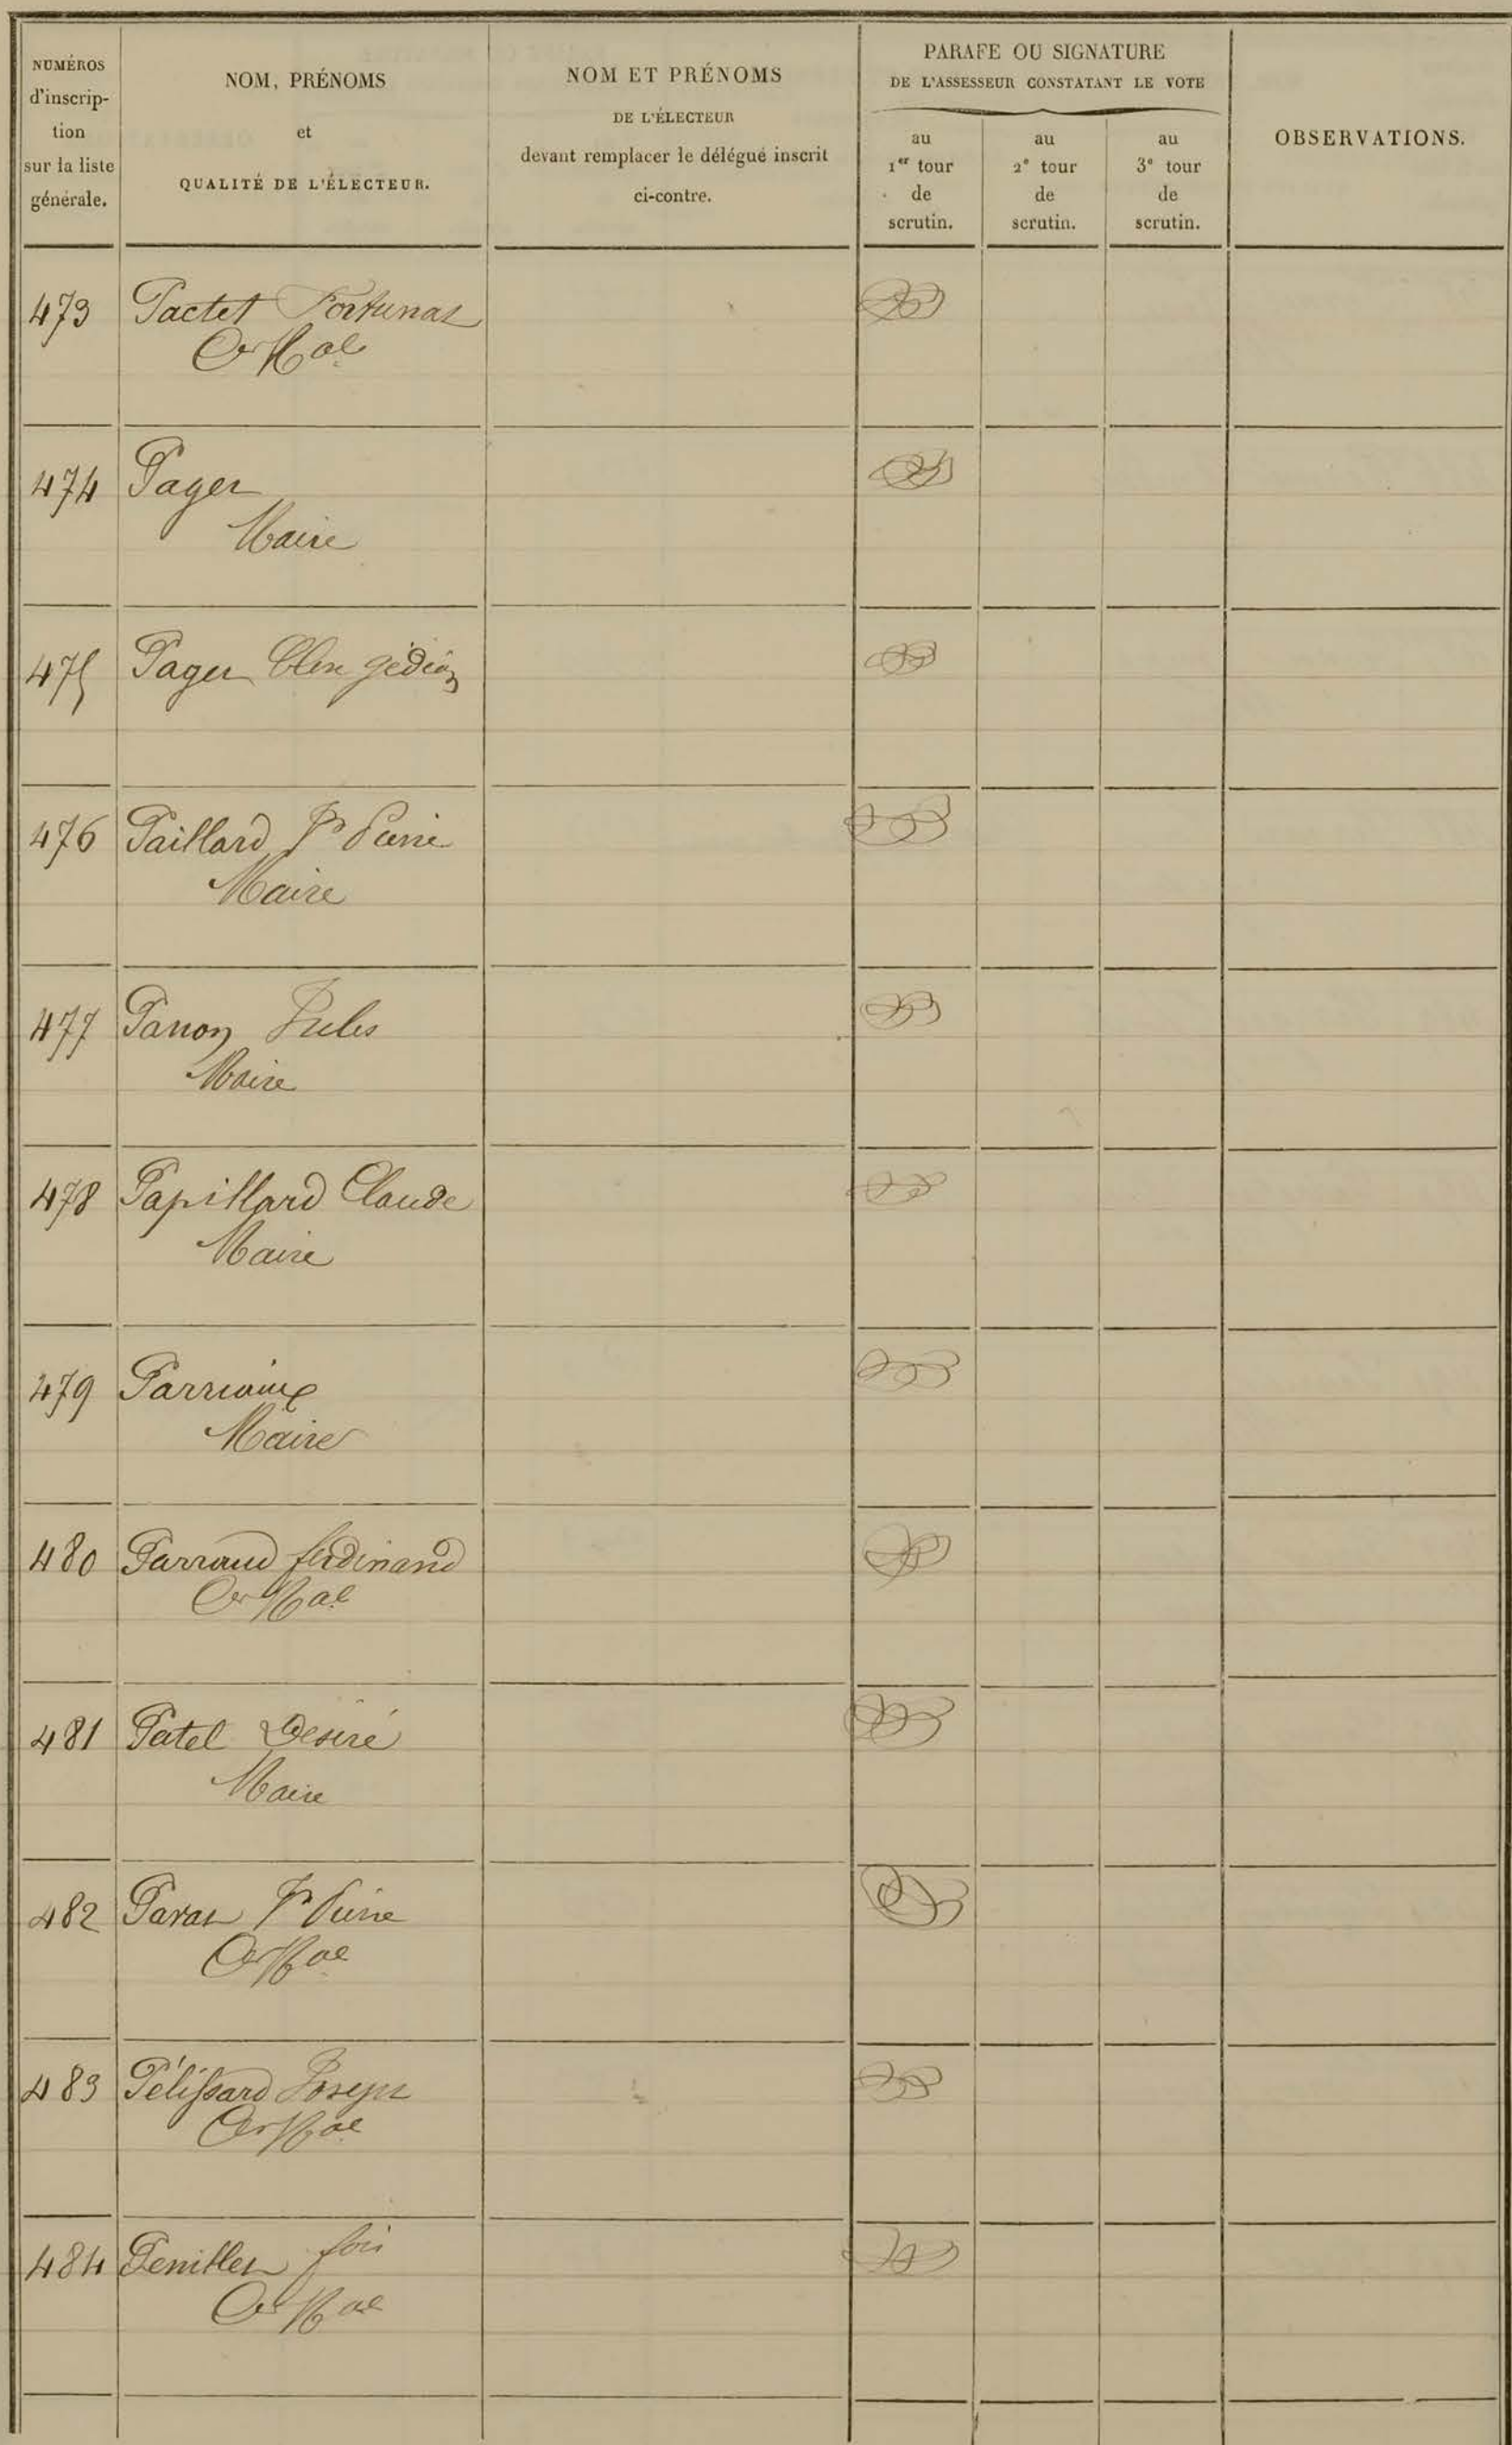 NUMÉROS
d'inscrip-
tion
sur la liste
générale.
NOM, PRÉNOMS
et
QUALITÉ DE L'ÉLECTEUR.
NOM ET PRÉNOMS
DE L'ÉLECTEUR
devant remplacer le délégué inscrit
ci-contre.
PARAFE OU SIGNATURE
DE L'ASSESSEUR CONSTATANT LE VOTE
au
1er tour
de
scrutin.
au
2e tour
de
scrutin.
au
3e tour
de
scrutin.
OBSERVATIONS.
473 Pactet Fortunat
Cer Mal
474 Paget
Maire
475 Paget Gédéon
476 Paillard Jn Pierre
Maire
477 Panon Jules
Maire
478 Papillard Claude
Maire
479 Parriaux
Maire
480 Parraud ferdinand
Cer Mal
481 Patel Désiré
Maire
482 Pavat Jn Pierre
Cer Mal
483 Pélissard Joseph
Cer Mal
484 Penillet
Cer Mal